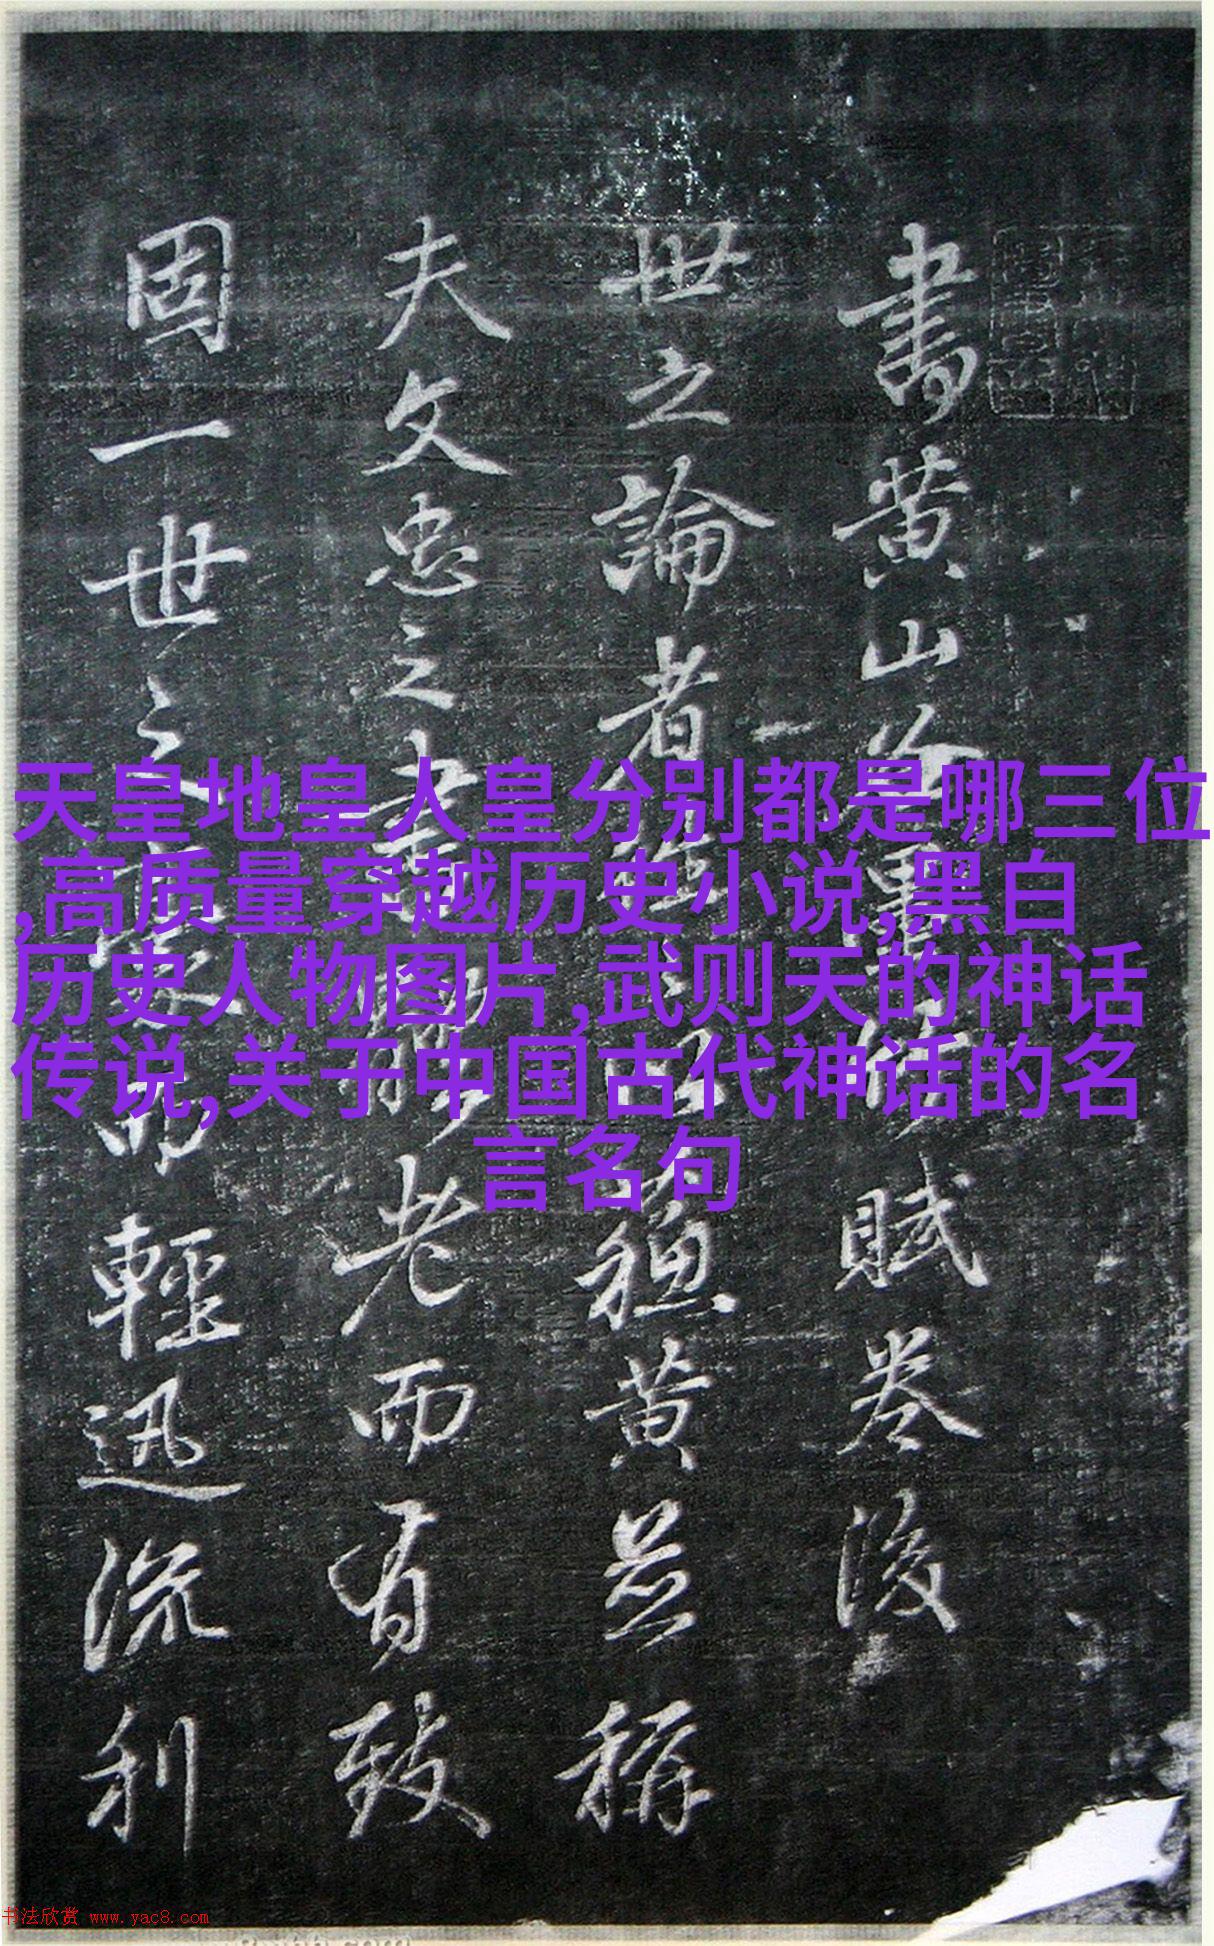 書黄山谷墨竹賦卷後
世之論者謂江右德黄並稱
夫文忠之書書體老而有致
固一世之豪而輕迅流利
天皇地皇人皇分别都是哪三位
,高质量穿越历史小说,黑白
历史人物图片,武则天的神话
传说,关于中国古代神话的名
言名句
书法欣赏 www.yac8.com